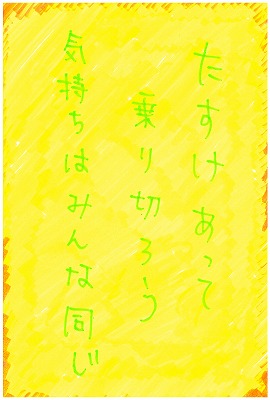 たすけあって
乗り切ろう
気持ちはみんな同じ